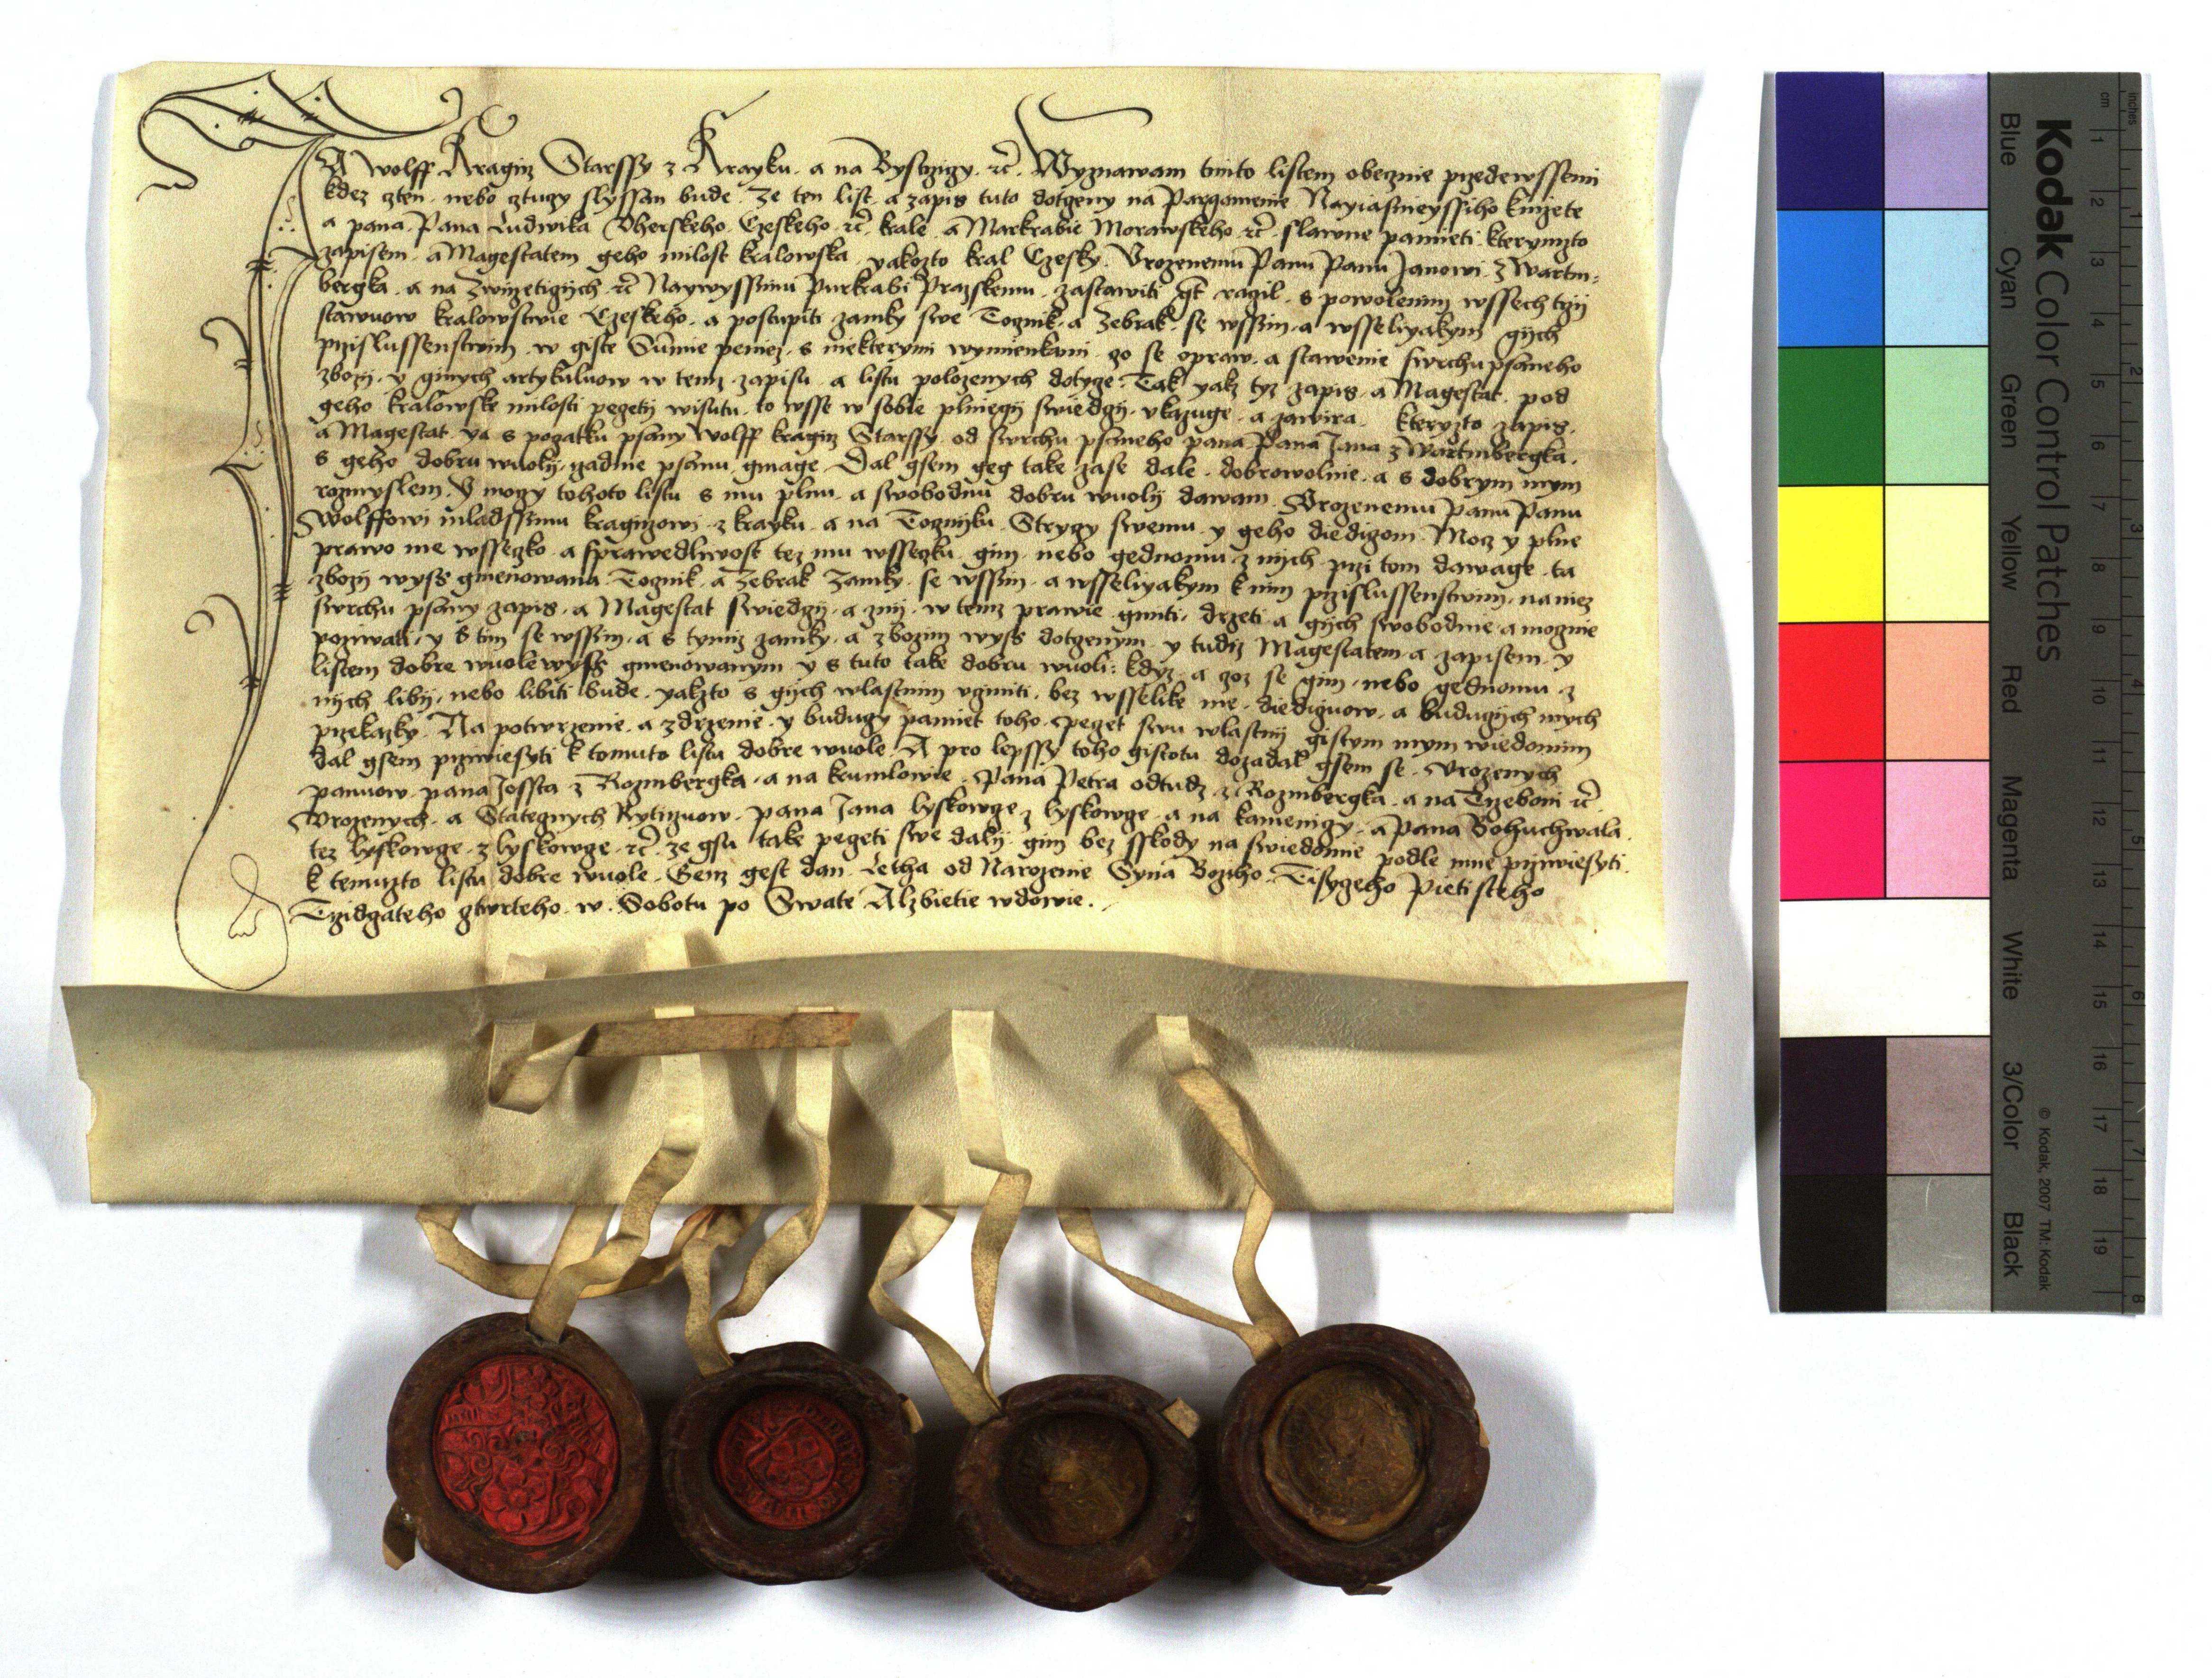 JA Wolff Kragirz Starssy z Krayku a na Bystrzigy etc. Wyznawam tiimto listem obecznie przedewssemi
kdez czten nebo cztugy slyssan bude. Ze ten list a zapis tuto dotczeny na Pargamenie Nayiasneyssiho knizete
a pana Pana Ludwika Vherskeho Czeskeho etc. krale a Markrabie Morawskeho etc. slawne pamieti kterymzto
zapisem a Magestatem geho milost kralowska yakozto kral Czesky. Vrozenemu Panu Panu Janowi z Wartm-
bergka a na Zwirzetigijch etc. Naywyssimu Purkrabi Prazskemu zastawiti gt racil s powolenim wssech trzij
stawuow kralowstwie Czeskeho a postupiti zamky swe Tocznik a Zebrak se wssim a wsseliyakym gijch
przislussenstwim w giste Summie peniez s niekterymi wymienkami czo se opraw a stawenie swrchu psaneho
zbozij y ginych artykuluow w temz zapisu a listu polozenych dotyce. Tak yakz tyz zapis a Magestat pod
geho kralowske milosti peczeti wisutu to wsse w sobie plniegij swiedczij vkazuge a zawira. kteryzto zapis
a Magestat ya s poczatku psany Wolff kragirz Starssy od swrchu psaneho pana Pana Jana z Wartmbergka
s geho dobru wuolij rzadnie psanu gmage Dal gsem geg take zase dale dobrowolnie a s dobrym mym
rozmyslem. V moczy tohoto listu s mu plnu a swobodnu dobru wuolij dawam Vrozenemu Panu Panu
Wolffowi mladssimu kragirzowi z krayku a na Tocznijku Strygy swemu y geho diediczom Mocz y plne
prawo me wsseczko a sprawedliwost tez mu wsseczku gim nebo gednomu z nijch przi tom dawage ta
zbozij wyss gmenowana Tocznik a Zebrak Zamky se wssim a wsseliyakym k nim przislussenstwim na niez
swrchu psany zapis a Magestat swiedczij a znij w temz prawie gmiti drzeti a gijch swobodnie a mocznie
pozijwati y s tim se wssim a s tymiz zamky a zbozim wyss dotczenym y tudiz Magestatem a zapisem y
listem dobre wuole wyss gmenowanym y s tuto take dobru wuoli: kdyz a czoz se gim nebo gednomu z
nijch libij nebo libiti bude yakzto s gijch wlastnim vcziniti bez wsselike me diediczuow a buduczijch mych
przekazky. Na potwrzenie a zdrzenie y buduczy pamiet toho peczet swu wlastnij gistym mym wiedomim
dal gsem przywiesyti k tomuto listu dobre wuole. A pro lepssy toho gistotu dozadal gsem se Vrozenych
panuow pana Jossta z Rozmbergka a na krumlowie Pana Petra odtudz z Rozmbergka a na Trzeboni etc.
Vrozenych a Stategnych Rytirzuow pana Jana lyskowge z lyskowge a na kamenigy a Pana Bohuchwala
tez lyskowge z lyskowge etc. ze gsu take peczeti swe dalij gim bez sskody na swiedomie podle mne przywiesyti
k temuzto listu dobre wuole. Genz gest dan Letha od Narozenie Syna Bozyho Tisyczeho Pietisteho
Trzidczateho cztwrteho w Sobotu po Swate Alzbietie wdowie.
Kodak Color Control Patches
Blue Cyan Green Yellow Red Magenta White 3/Color Black
© Kodak, 2007 TM: Kodak
cm 1 2 3 4 5 6 7 8 9 10 11 12 13 14 15 16 17 18 19
inches 1 2 3 4 5 6 7 8